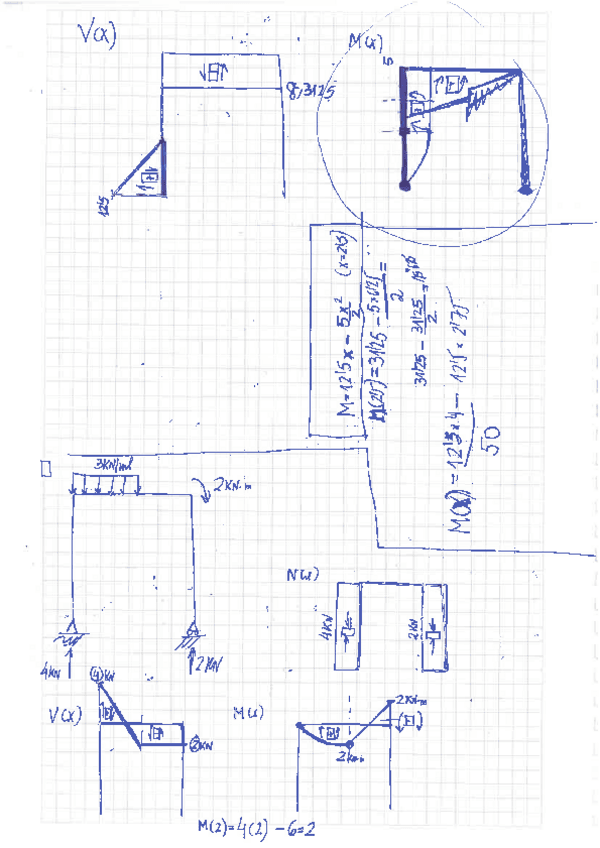 V(x)
M(x)
5
8,3125
12'5
M=12'5x - 5x²/2 (x=2'5)
M(2'5)=31'25 - 5×6'25/2 =
31'25 - 31'25/2 =
M(x) = 12'5×4 - 12'5×2'75
50
3KN/ml
2KN·m
N(x)
4KN
2KN
4KN
2KN
V(x)
(4)KN
(2)KN
M(x)
2KN·m
2KN·m
M(2)=4(2)-6=2